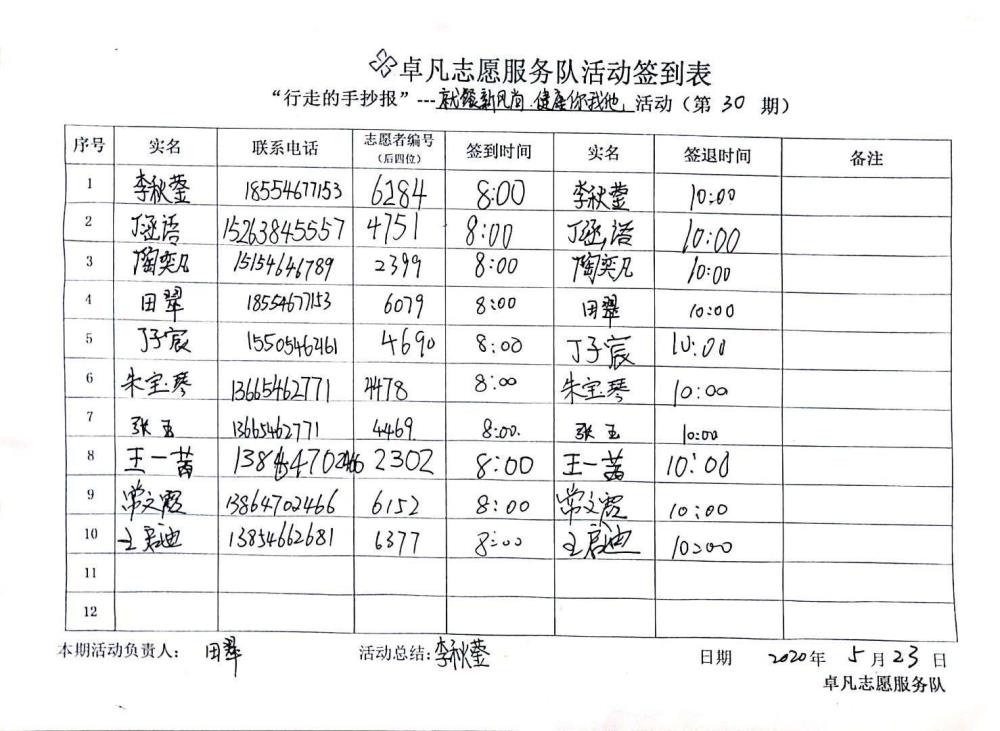 卓凡志愿服务队活动签到表
“行走的手抄报”---就餐新风尚.健康你我他 活动（第 30 期）
序号 实名 联系电话 志愿者编号（后四位） 签到时间 实名 签退时间 备注
1 李秋蓥 18554677153 6284 8:00 李秋蓥 10:00
2 丁涵语 15263845557 4751 8:00 丁涵语 10:00
3 陶奕凡 15154646789 2399 8:00 陶奕凡 10:00
4 田翠 18554677153 6079 8:00 田翠 10:00
5 丁子宸 15505462461 4690 8:00 丁子宸 10:00
6 朱宝琴 13665462771 4478 8:00 朱宝琴 10:00
7 张玉 13665462771 4469 8:00. 张玉 10:00
8 王一茜 13864702466 2302 8:00 王一茜 10:00
9 常文霞 13864702466 6152 8:00 常文霞 10:00
10 王启迪 13854662681 6377 8:00 王启迪 10:00
11
12
本期活动负责人： 田翠 活动总结：李秋蓥 日期 2020年 5月23日
卓凡志愿服务队